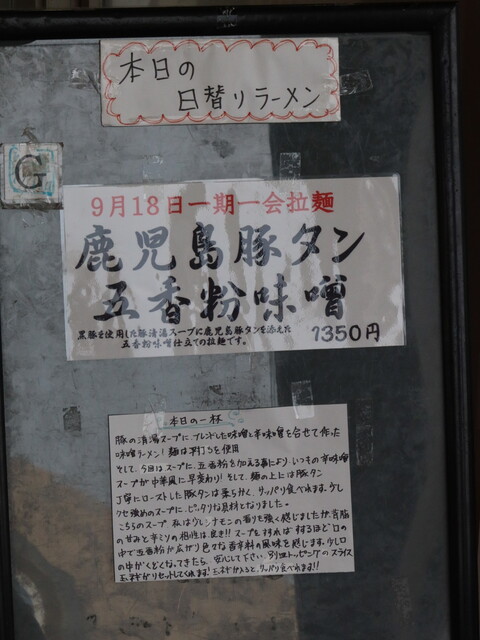 本日の
日替りラーメン
G
9月18日一期一会拉麺
鹿児島豚タン
五香粉味噌
黒豚を使用した豚清湯スープに鹿児島豚タンを添えた
五香粉味噌仕立ての拉麺です。
1350円
本日の一杯
豚の清湯スープに、ブレンドした味噌と辛味噌を合せて作った
味噌ラーメン!麺は平打ちを使用
そして、今回はスープに、五香粉を加える事により、いつもの辛味噌
スープが中華風に早変わり!そして、麺の上には豚タン
丁寧にローストした豚タンは柔らかく、サッパリ食べれます。少し
クセ強めのスープに、ピッタリな具材となりました。
こちらのスープ 私はウレシナモンの香りを強く感じましたが、背脂
の甘みと辛ミソの相性は良き!!スープをすすればすするほど口の
中で五香粉が広がり色々な香辛料の風味を感じます。少し口
の中がくどくなってきたら、安心して下さい。別皿トッピングのスライス
玉ネギがリセットしてくれます!玉ネギが入ると、サッパリ食べれます!!